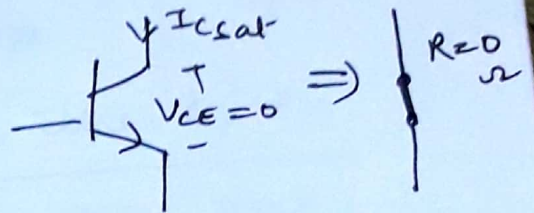 ICsat
+
VCE=0
-
⇒
R=0
Ω